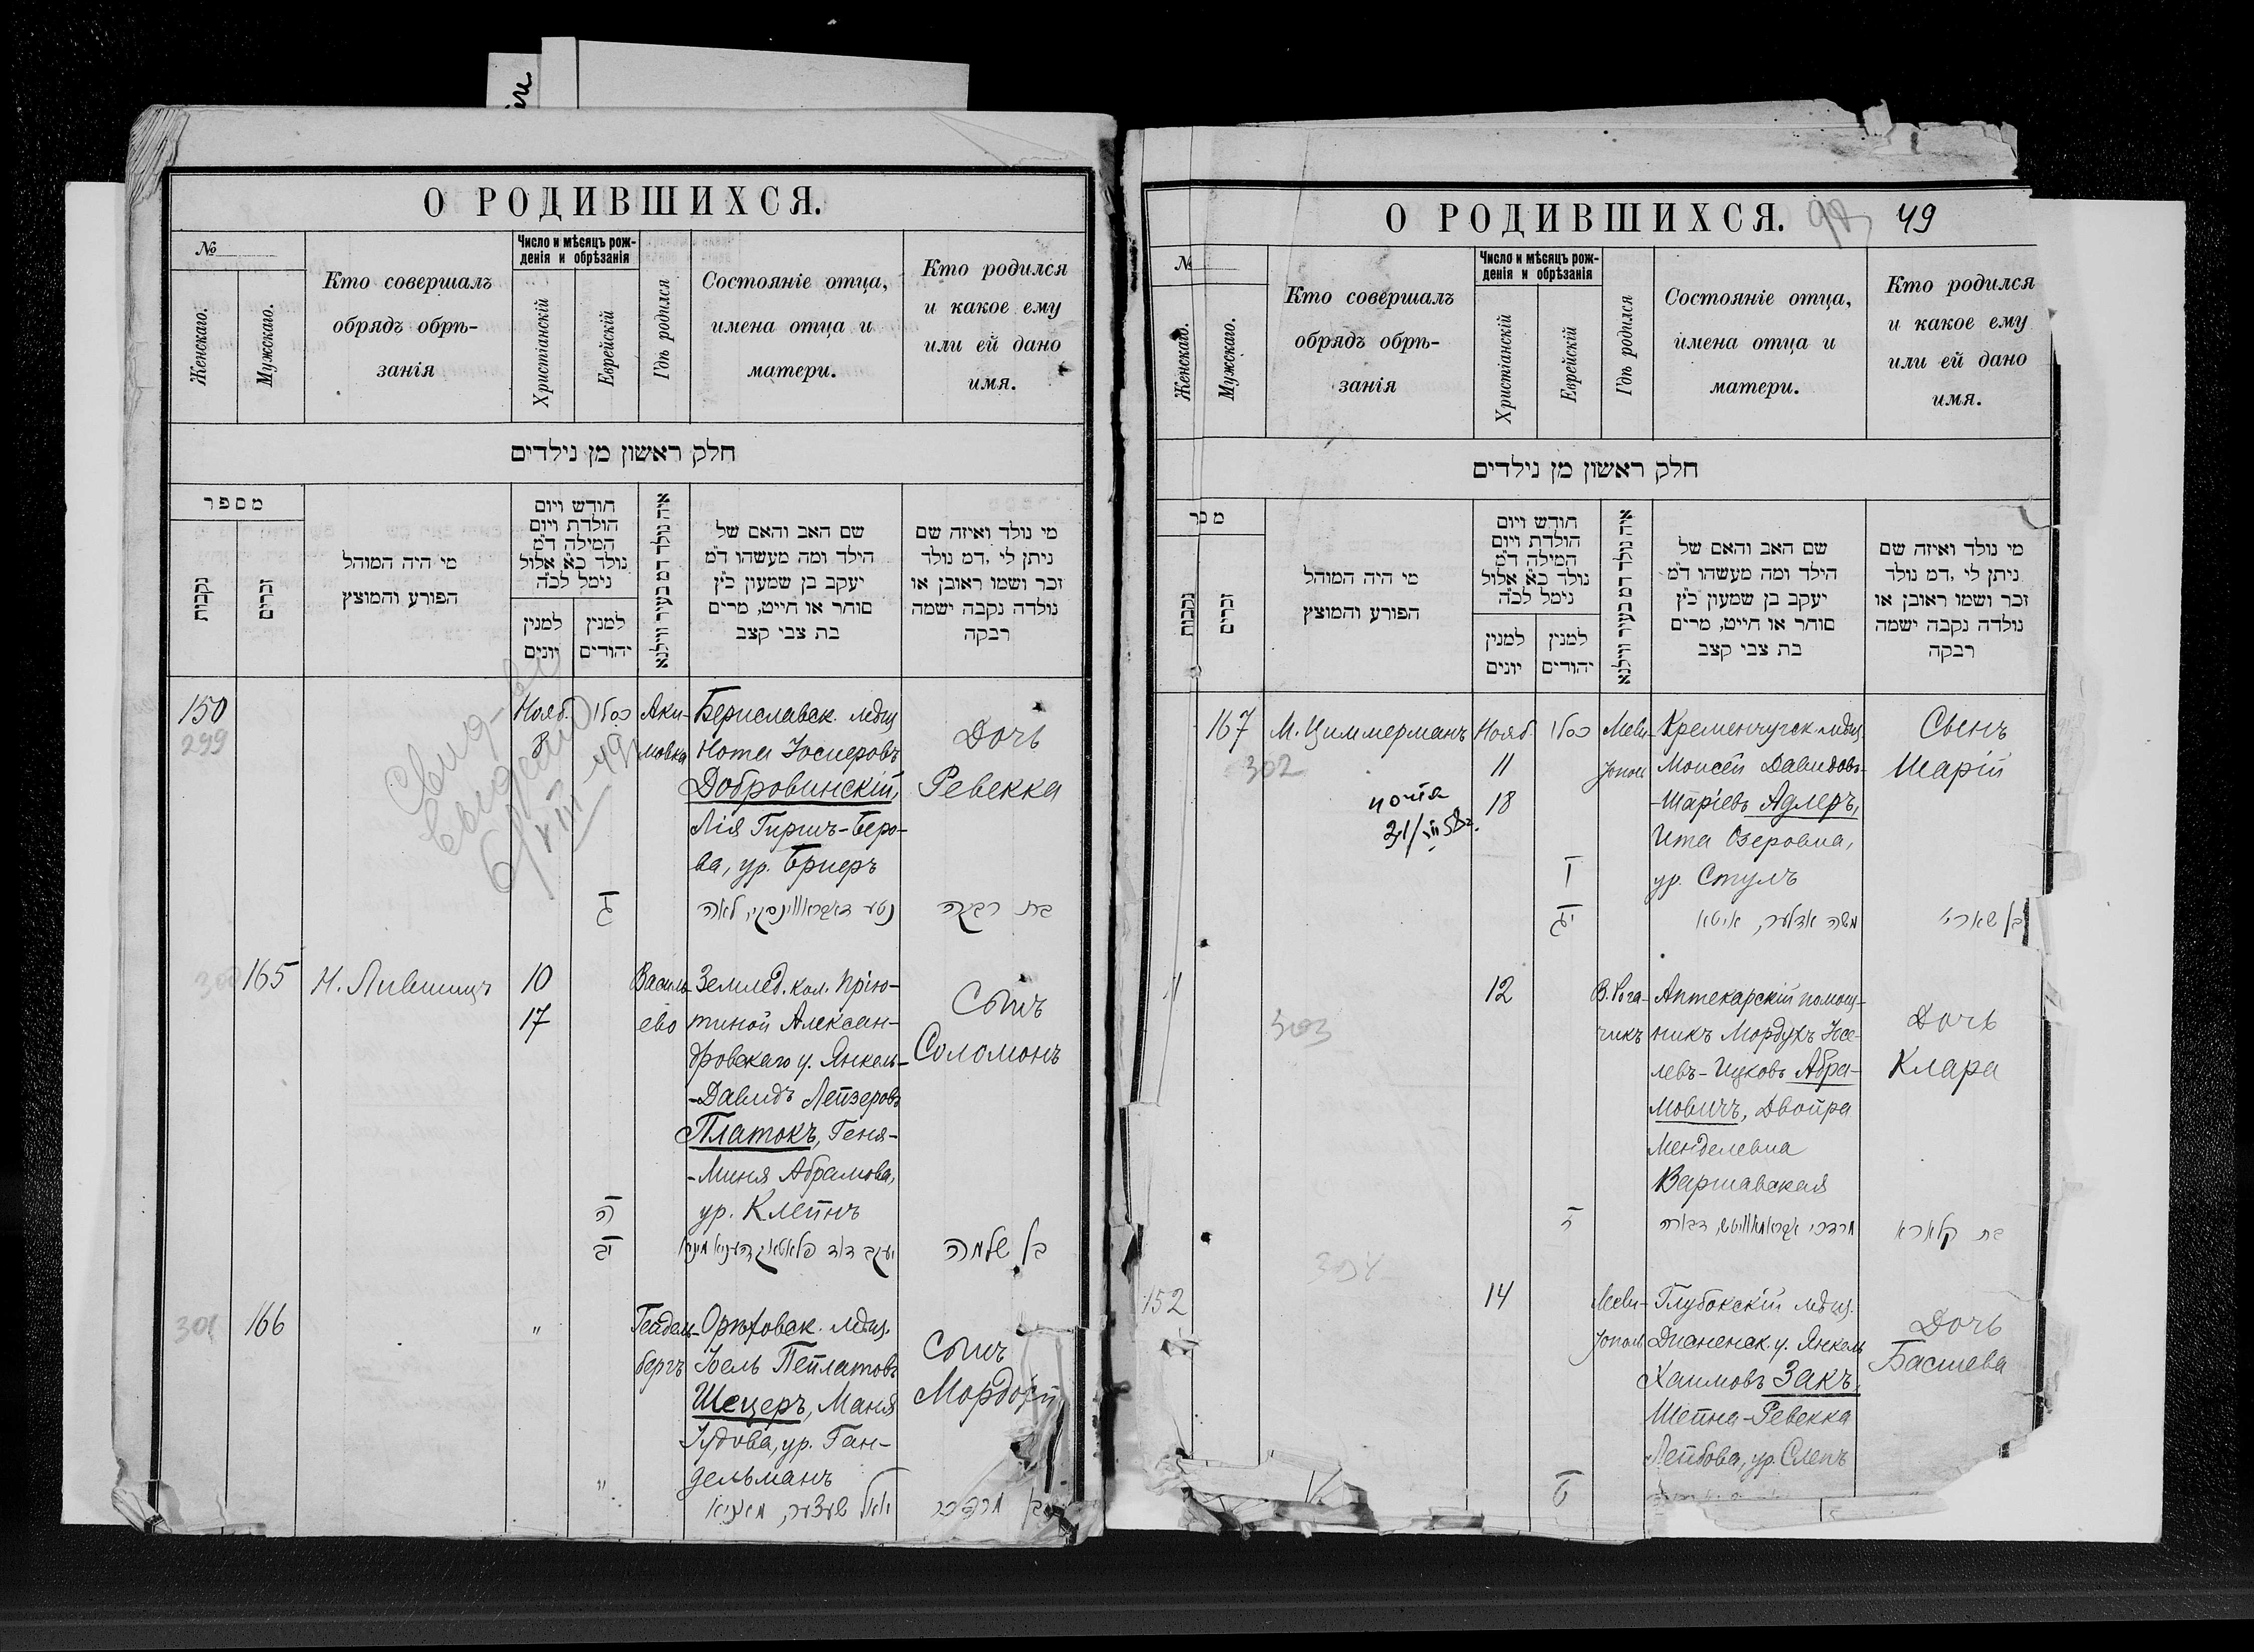 О РОДИВШИХСЯ.
№
Женскаго.
Мужскаго.
Кто совершалъ
обрядъ обрѣ-
занія
Число и мѣсяцъ рож-
денія и обрѣзанія
Христіанскій
Еврейскій
Гдѣ родился
Состояніе отца,
имена отца и
матери.
Кто родился
и какое ему
или ей дано
имя.
חלק ראשון מן נילדים
מספר
נקבות
זכרים
מי היה המוהל
הפורע והמוצץ
חודש ויום
הולדת ויום
המילה ד״מ
נולד כ״א אלול
נימל לכ״ה
למנין
יונים
למנין
יהודים
איה נולד דמ בעיר ווילנא
שם האב והאם של
הילד ומה מעשהו ד״מ
יעקב בן שמעון כ״ץ
סוחר או חייט, מרים
בת צבי קצב
מי נולד ואיזה שם
ניתן לי ,דמ נולד
זכר ושמו ראובן או
נולדה נקבה ישמה
רבקה
150
299
Свид-во
выдано
6/VIII-49
Нояб.
8
כסלו
ג
Аки-
мовка
Бериславск. мѣщ
Нота Іосиферовъ
Добровинскій,
Лія Гиршъ-Беро-
ва, ур. Бриеръ
נטע דאבראווינסקי, לאה
Дочь
Ревекка
בת רבקה
165
Н. Лившицъ
10
17
ה
יב
Василь-
ево
Землед. кол. Прію-
тиной Алексан-
дровскаго у. Янкель-
-Давидъ Лейзеровъ
Платокъ, Геня-
-Миня Абрамова,
ур. Клейнъ
יעקב דוד פלאטאק, העניא מיניא
Сынъ
Соломонъ
בן שלמה
301
166
"
"
Гейдель-
бергъ
Орѣховск. мѣщ.
Іоель Пейлатовъ
Шецеръ, Маня
Іудова, ур. Ган-
дельманъ
יואל שעצער, מאניא
Сынъ
Мордо
בן מרדכי
О РОДИВШИХСЯ.
98
49
№
Женскаго.
Мужскаго.
Кто совершалъ
обрядъ обрѣ-
занія
Число и мѣсяцъ рож-
денія и обрѣзанія
Христіанскій
Еврейскій
Гдѣ родился
Состояніе отца,
имена отца и
матери.
Кто родился
и какое ему
или ей дано
имя.
חלק ראשון מן נילדים
נקבות
זכרים
מי היה המוהל
הפורע והמוצץ
חודש ויום
הולדת ויום
המילה ד״מ
נולד כ״א אלול
נימל לכ״ה
למנין
יונים
למנין
יהודים
איה נולד דמ בעיר ווילנא
שם האב והאם של
הילד ומה מעשהו ד״מ
יעקב בן שמעון כ״ץ
סוחר או חייט, מרים
בת צבי קצב
מי נולד ואיזה שם
ניתן לי ,דמ נולד
זכר ושמו ראובן או
נולדה נקבה ישמה
רבקה
167
302
М. Циммерманъ
почта
31/VII 58г.
Нояб.
11
18
כסלו
ו
יג
Мели-
тополь
Кременчугск. мѣщ
Моисей Давидовъ-
-Шаріевъ Адлеръ,
Ита Озеровна,
ур. Стулъ
משה אדלער, איטא
Сынъ
Шарій
בן שאריי
303
12
ז
В. Рога-
чикъ
Аптекарскій помощ-
никъ Мордухъ Іосе-
левъ-Ицковъ Абра-
мовичъ, Двойра
Менделевна
Варшавская
מרדכי אבראמאוויטש, דבורה
Дочь
Клара
בת קלארא
152
304
14
ט
Мели-
тополь
Глубокскій мѣщ.
Дисненск. у. Янкель
Хаимовъ Закъ,
Шейна-Ревекка
Лейбова, ур. Слепъ
Дочь
Басшева